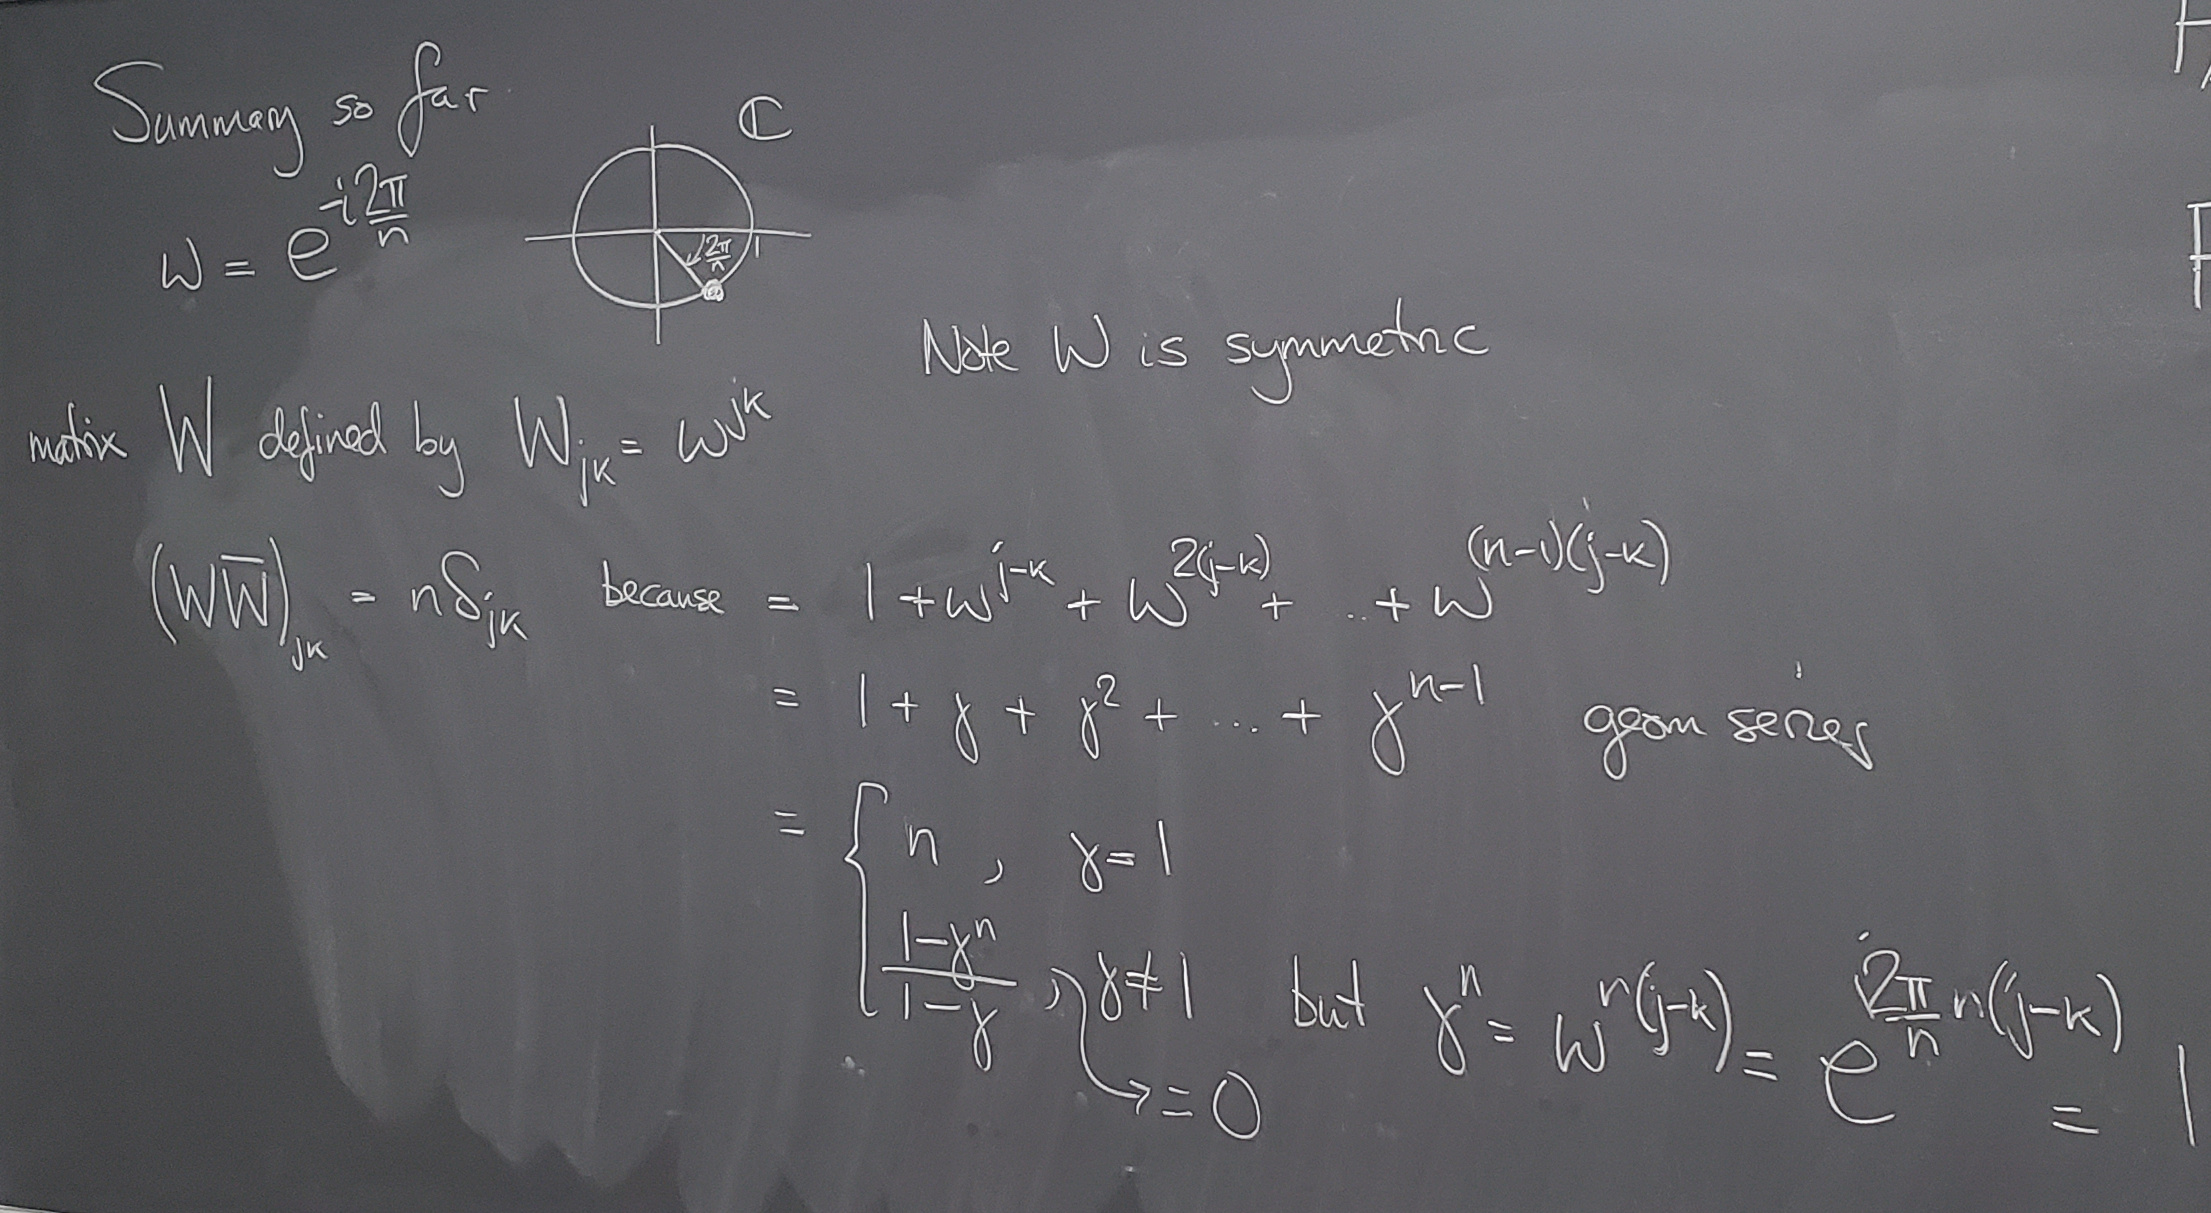 Summary so far
ω = e^{-i 2π/n}
ℂ
2π/n
1
Note W is symmetric
matrix W defined by W_{jk} = ω^{jk}
(W W̄)_{jk} = nδ_{jk} because = 1 + ω^{j-k} + ω^{2(j-k)} + ... + ω^{(n-1)(j-k)}
= 1 + γ + γ^2 + ... + γ^{n-1} geom series
= { n , γ = 1
(1-γ^n)/(1-γ) , γ ≠ 1 but γ^n = ω^{n(j-k)} = e^{i 2π/n n(j-k)} = 1
→ = 0